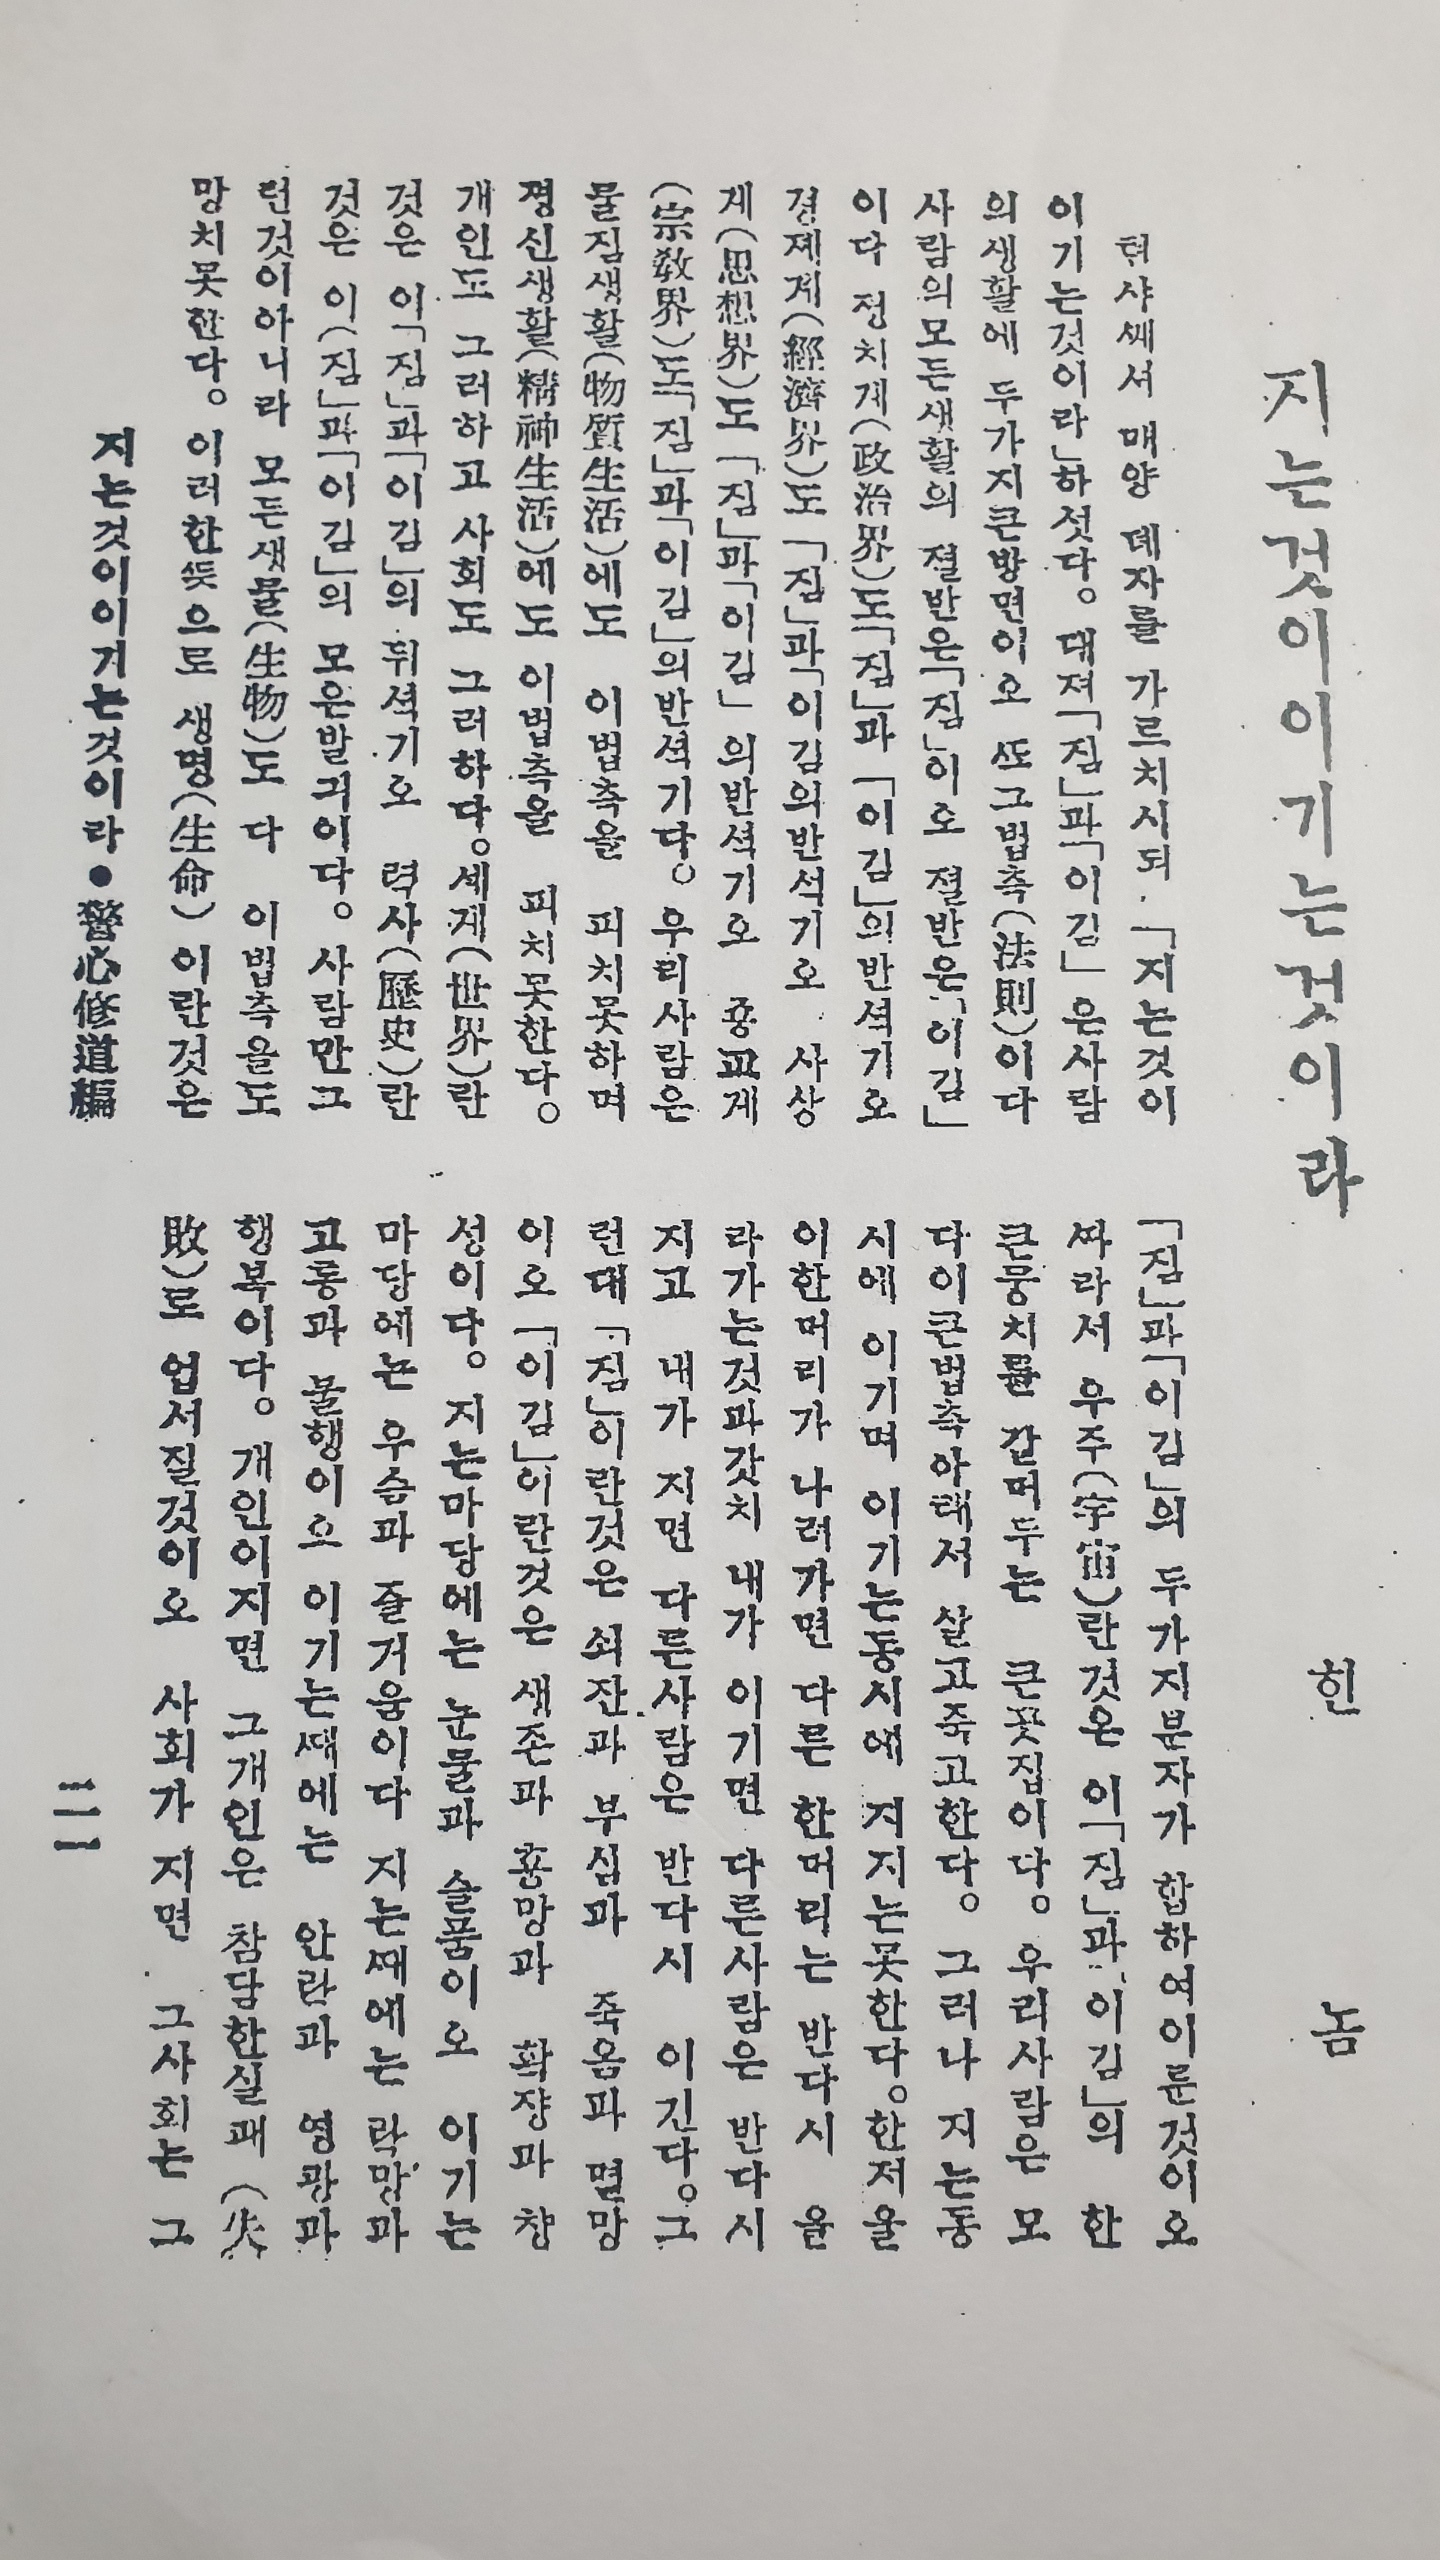 지는것이이기는것이라
힌 놈
텬사쎄서 매양 뎨자를 가르치시되 「지는것이
이기는것이라」하섯다。 대져「짐」과「이김」 은사람
의생활에 두가지큰방면이오 ᄯᅩ그법측(法則)이다
사람의모든생활의 졀반은「짐」이오 졀반은「이김」
이다 정치계(政治界)도「짐」과 「이김」의반셕기오
경졔계(經濟界)도 「짐」과「이김의반석기오 사상
계(思想界)도 「짐」과「이김」 의반셕기오 종교계
(宗敎界)도「짐」과「이김」의반셕기다。 우리사람은
물질생활(物質生活)에도 이법측을 피치못하며
졍신생활(精神生活)에도 이법측을 피치못한다。
개인도 그러하고 사회도 그러하다。세계(世界)란
것은 이「짐」과「이김」의 뒤셕기오 력사(歷史)란
것은 이(짐」과「이김」의 모은발긔이다。 사람만그
런것이아니라 모든생물(生物)도 다 이법측을도
망치못한다。 이러한ᄯᅳᆺ으로 생명(生命) 이란것은
「짐」과「이김」의 두가지분자가 합하여이룬것이오
ᄯᅡ라서 우주(宇宙)란것은 이「짐」과「이김」의 한
큰뭉치를 갈머두는 큰곳집이다。 우리사람은 모
다이큰법측아래서 살고죽고한다。 그러나 지는동
시에 이기며 이기는동시에 지지는못한다。한저울
이한머리가 나려가면 다른 한머리는 반다시 올
라가는것과갓치 내가 이기면 다른사람은 반다시
지고 내가 지면 다른사람은 반다시 이긴다。그
런대 「짐」이란것은 쇠잔과 부심과 죽음과 멸망
이오 「이김」이란것은 생존과 흥망과 확쟝과 챵
성이다。 지는마당에는 눈물과 슬픔이오 이기는
마당에는 우슴과 즐거움이다 지는ᄯᅢ에는 락망과
고통과 불행이오 이기는ᄯᅢ에는 안락과 영광과
행복이다。 개인이지면 그개인은 참담한실패 (失
敗)로 업서질것이오 사회가 지면 그사회는 그
지는것이이기는것이라●警心修道編
二一